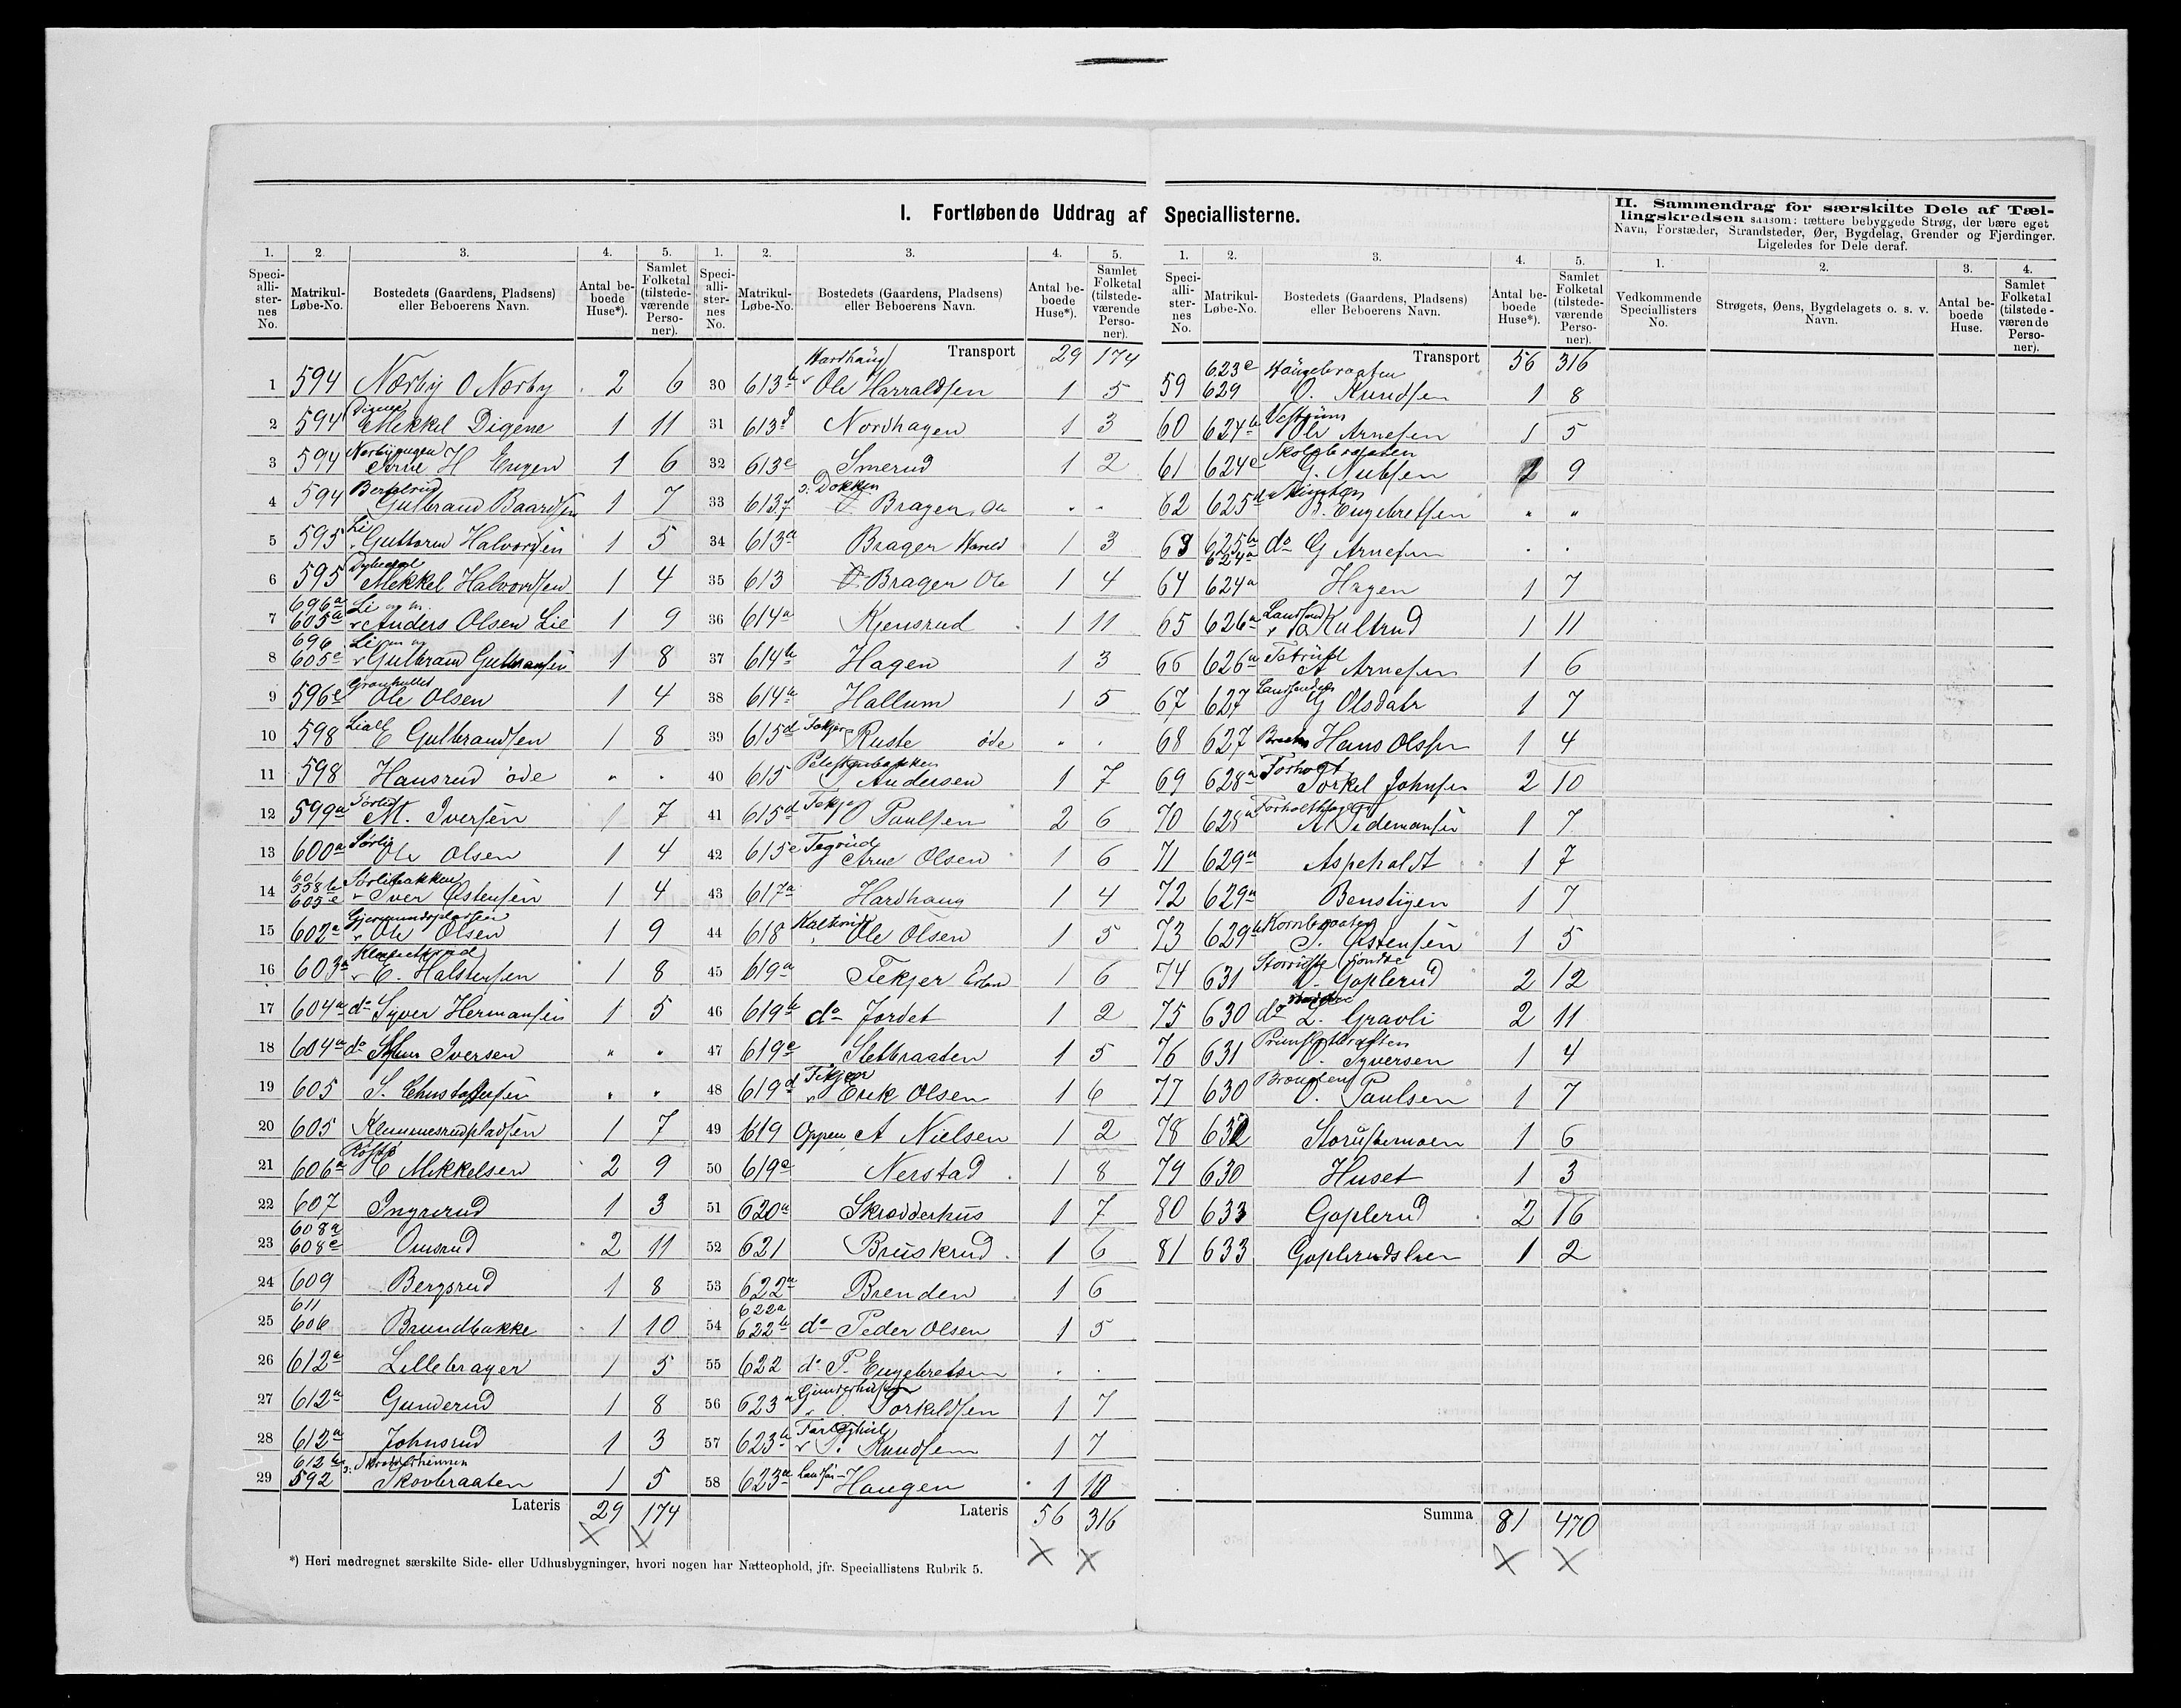 I. Fortløbende Uddrag af Speciallisterne.
II. Sammendrag for særskilte Dele af Tællingskredsen saasom: tættere bebyggede Strøg, der bære eget Navn, Forstæder, Strandsteder, Øer, Bygdelag, Grender og Fjerdinger. Ligeledes for Dele deraf.
1. 2. 3. 4. 5.
Speciallisternes No. Matrikul-Løbe-No. Bostedets (Gaardens, Pladsens) eller Beboerens Navn. Antal beboede Huse*). Samlet Folketal (tilstedeværende Personer).
1 594 Nørby O Nørby 2 6
2 594 Digene Mekkel Digene 1 11
3 594 Norbyengen Arne H Engen 1 6
4 594 Gulbrand Baardsen 1 7
5 595 Li Guttorm Halvorsen 1 5
6 595 Mekkel Halvorsen 1 4
7 696a 605a Li Anders Olsen Lie 1 9
8 696 605c Li Gulbrand Gulbransen 1 8
9 596e Ole Olsen 1 4
10 598 E Gulbrandsen 1 8
11 598 Hansrud øde " "
12 599a Sørli M. Iversen 1 7
13 600a Sørlie Ole Olsen 1 4
14 601 558b 605e Sørlibakken Iver Østensen 1 4
15 602a Gjermundsplassen Ole Olsen 1 9
16 603a E. Halstensen 1 8
17 604a do Syver Hermansen 1 5
18 604a do Iversen " "
19 605 S. " "
20 605 Klemmesrudpladsen 1 7
21 606a Mekkelsen 2 9
22 607 Ingrerud 1 3
23 608a 608c Omsrud 2 11
24 609 Bergsrud 1 8
25 611 606 Brundbakke 1 10
26 612a Lillebrager 1 5
27 612a Gunderud 1 8
28 612a Johnsrud 1 3
29 612b 592 Skovbraaten 1 5
Lateris 29 174
1. 2. 3. 4. 5.
Speciallisternes No. Matrikul-Løbe-No. Bostedets (Gaardens, Pladsens) eller Beboerens Navn. Antal beboede Huse*). Samlet Folketal (tilstedeværende Personer).
Transport 29 174
30 613b Hardhaug Ole Harraldsen 1 5
31 613d Nordhagen 1 3
32 613e Smerud 1 2
33 613f Dokken Brager, Ole " "
34 613a Brager Harald 1 3
35 613 Brager Ole 1 4
36 614a Kjensrud 1 11
37 614b Hagen 1 3
38 614a Hallum 1 5
39 615d Ruste øde " "
40 615 Andersen 1 7
41 615d O Paulsen 2 6
42 615e Tegrud Arne Olsen 1 6
43 617a Hardhaug 1 4
44 618 Kaltrud Ole Olsen 1 5
45 619a Tekjer 1 6
46 619b do Jordet 1 2
47 619c Sletbraaten 1 5
48 619d Tekjer Erik Olsen 1 6
49 619 Oppen A Nielsen 1 2
50 619e Nerstad 1 8
51 620a Skrædderhus 1 7
52 621 Bruskrud 1 6
53 622a Brenden 1 6
54 622a 622b do Peder Olsen 1 5
55 622 do P. Engebretsen " "
56 623a Torkildsen 1 7
57 623b Knudsen 1 7
58 623a Haugen 1 10
Lateris 56 316
1. 2. 3. 4. 5.
Speciallisternes No. Matrikul-Løbe-No. Bostedets (Gaardens, Pladsens) eller Beboerens Navn. Antal beboede Huse*). Samlet Folketal (tilstedeværende Personer).
Transport 56 316
59 623e 629 Haugebraaten O. Knudsen 1 8
60 624b Ole Arnesen 1 5
61 624c G. Nubsen 2 9
62 625d B. Engebretsen " "
63 625b 624a do G Arnesen " "
64 624a Hagen 1 7
65 626a Kultrud 1 11
66 626a A Arnesen 1 6
67 627 G Olsdatr 1 7
68 627 Hans Olsen 1 4
69 628a Torholt Torkel Johnsen 2 10
70 628a A Tidemansen 1 7
71 629a Aspeholdt 1 7
72 629a Benstigen 1 7
73 629b Kornbraaten Østensen 1 5
74 631 Søndre O. Goplerud 2 12
75 630 do L. Gravli 2 11
76 631 O. Syversen 1 4
77 630 O. Paulsen 1 7
78 632 Storustemoen 1 6
79 630 Huset 1 3
80 633 Goplerud 2 16
81 633 Goplerudslien 1 2
Summa 81 470
1. 2. 3. 4.
Vedkommende Speciallisters No. Strøgets, Øens, Bygdelagets o. s. v. Navn. Antal beboede Huse. Samlet Folketal (tilstedeværende Personer).
*) Heri medregnet særskilte Side- eller Udhusbygninger, hvori nogen har Natteophold, jfr. Speciallistens Rubrik 5.